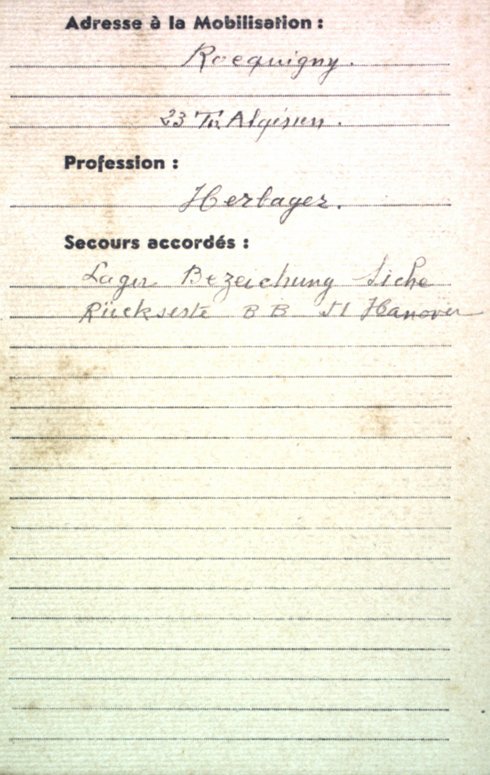 Adresse à la Mobilisation :
Rocquigny.
23 Tir Algérien.
Profession :
Herbager.
Secours accordés :
Lager Bezeichung Siche
Rückseste B B 51 Hanover